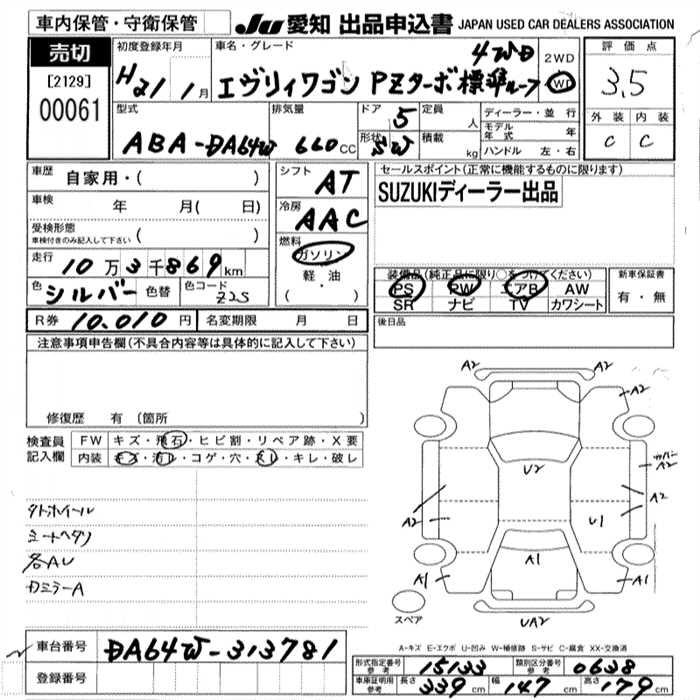 車内保管・守衛保管
JU 愛知 出品申込書 JAPAN USED CAR DEALERS ASSOCIATION
売切
[2129]
00061
初度登録年月
H21年 1月
車名・グレード
4WD
エヴリィワゴン PZターボ標準ルーフ
2WD
評価点
3.5
外装 内装
C C
型式
ABA-DA64W
排気量
660cc
ドア 5
形状 SW
定員 人
積載 kg
ディーラー・並行
モデル年式 年
ハンドル 左・右
車歴 自家用・( )
車検 年 月( 日)
受検形態
車検付きのみ記入して下さい ( )
走行 10万3千869km
色 シルバー 色替 色コード Z2S
R券 10,010円 名変期限 月 日
シフト AT
冷房 AAC
燃料
ガソリン
軽・油
( )
セールスポイント(正常に機能するものに限ります)
SUZUKIディーラー出品
装備品(純正品に限り○をつけてください)
PS PW エアB AW
SR ナビ TV カワシート
新車保証書
有・無
後日品
注意事項申告欄(不具合内容等は具体的に記入して下さい)
修復歴 有(箇所 )
検査員記入欄
FW キズ・飛石・ヒビ割・リペア跡・X要
内装 キズ・汚レ・コゲ・穴・スレ・キレ・破レ
タトホイール
シートヘタリ
各AU
カミラーA
A2
A2
カバー
A2
U2
A2
A2
U1
A1
A1
A1
UA2
スペア
A-キズ E-エクボ U-凹み W-補修跡 S-サビ C-腐食 XX-交換済
車台番号 DA64W-313781
登録番号
形式指定番号 参考 15133 類別区分番号 参考 0638
車庫証明用 参考 長さ 339cm 幅 147cm 高さ 179cm